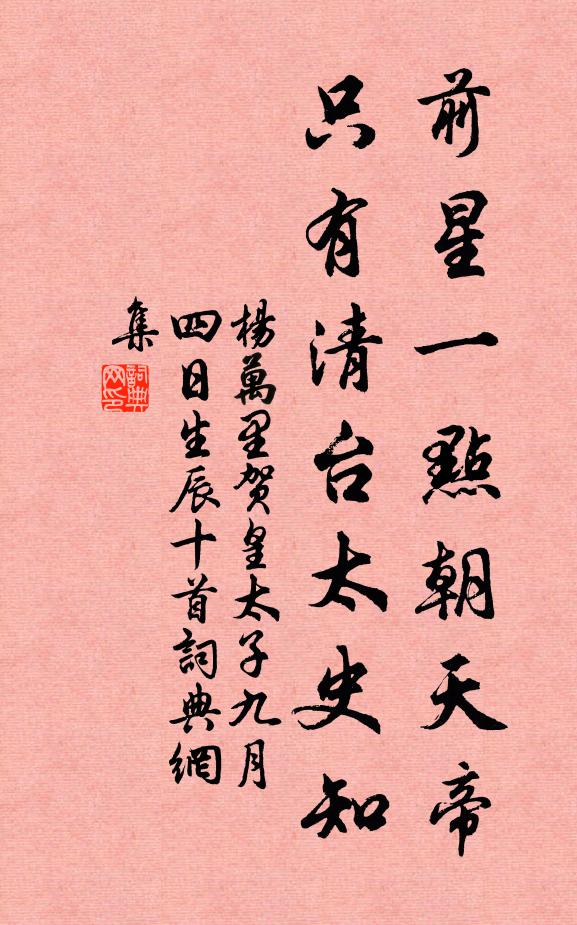 前星一點朝天帝
只有清台太史知
楊萬里賀皇太子九月
四日生辰十首詞典網
集
詞典
网印